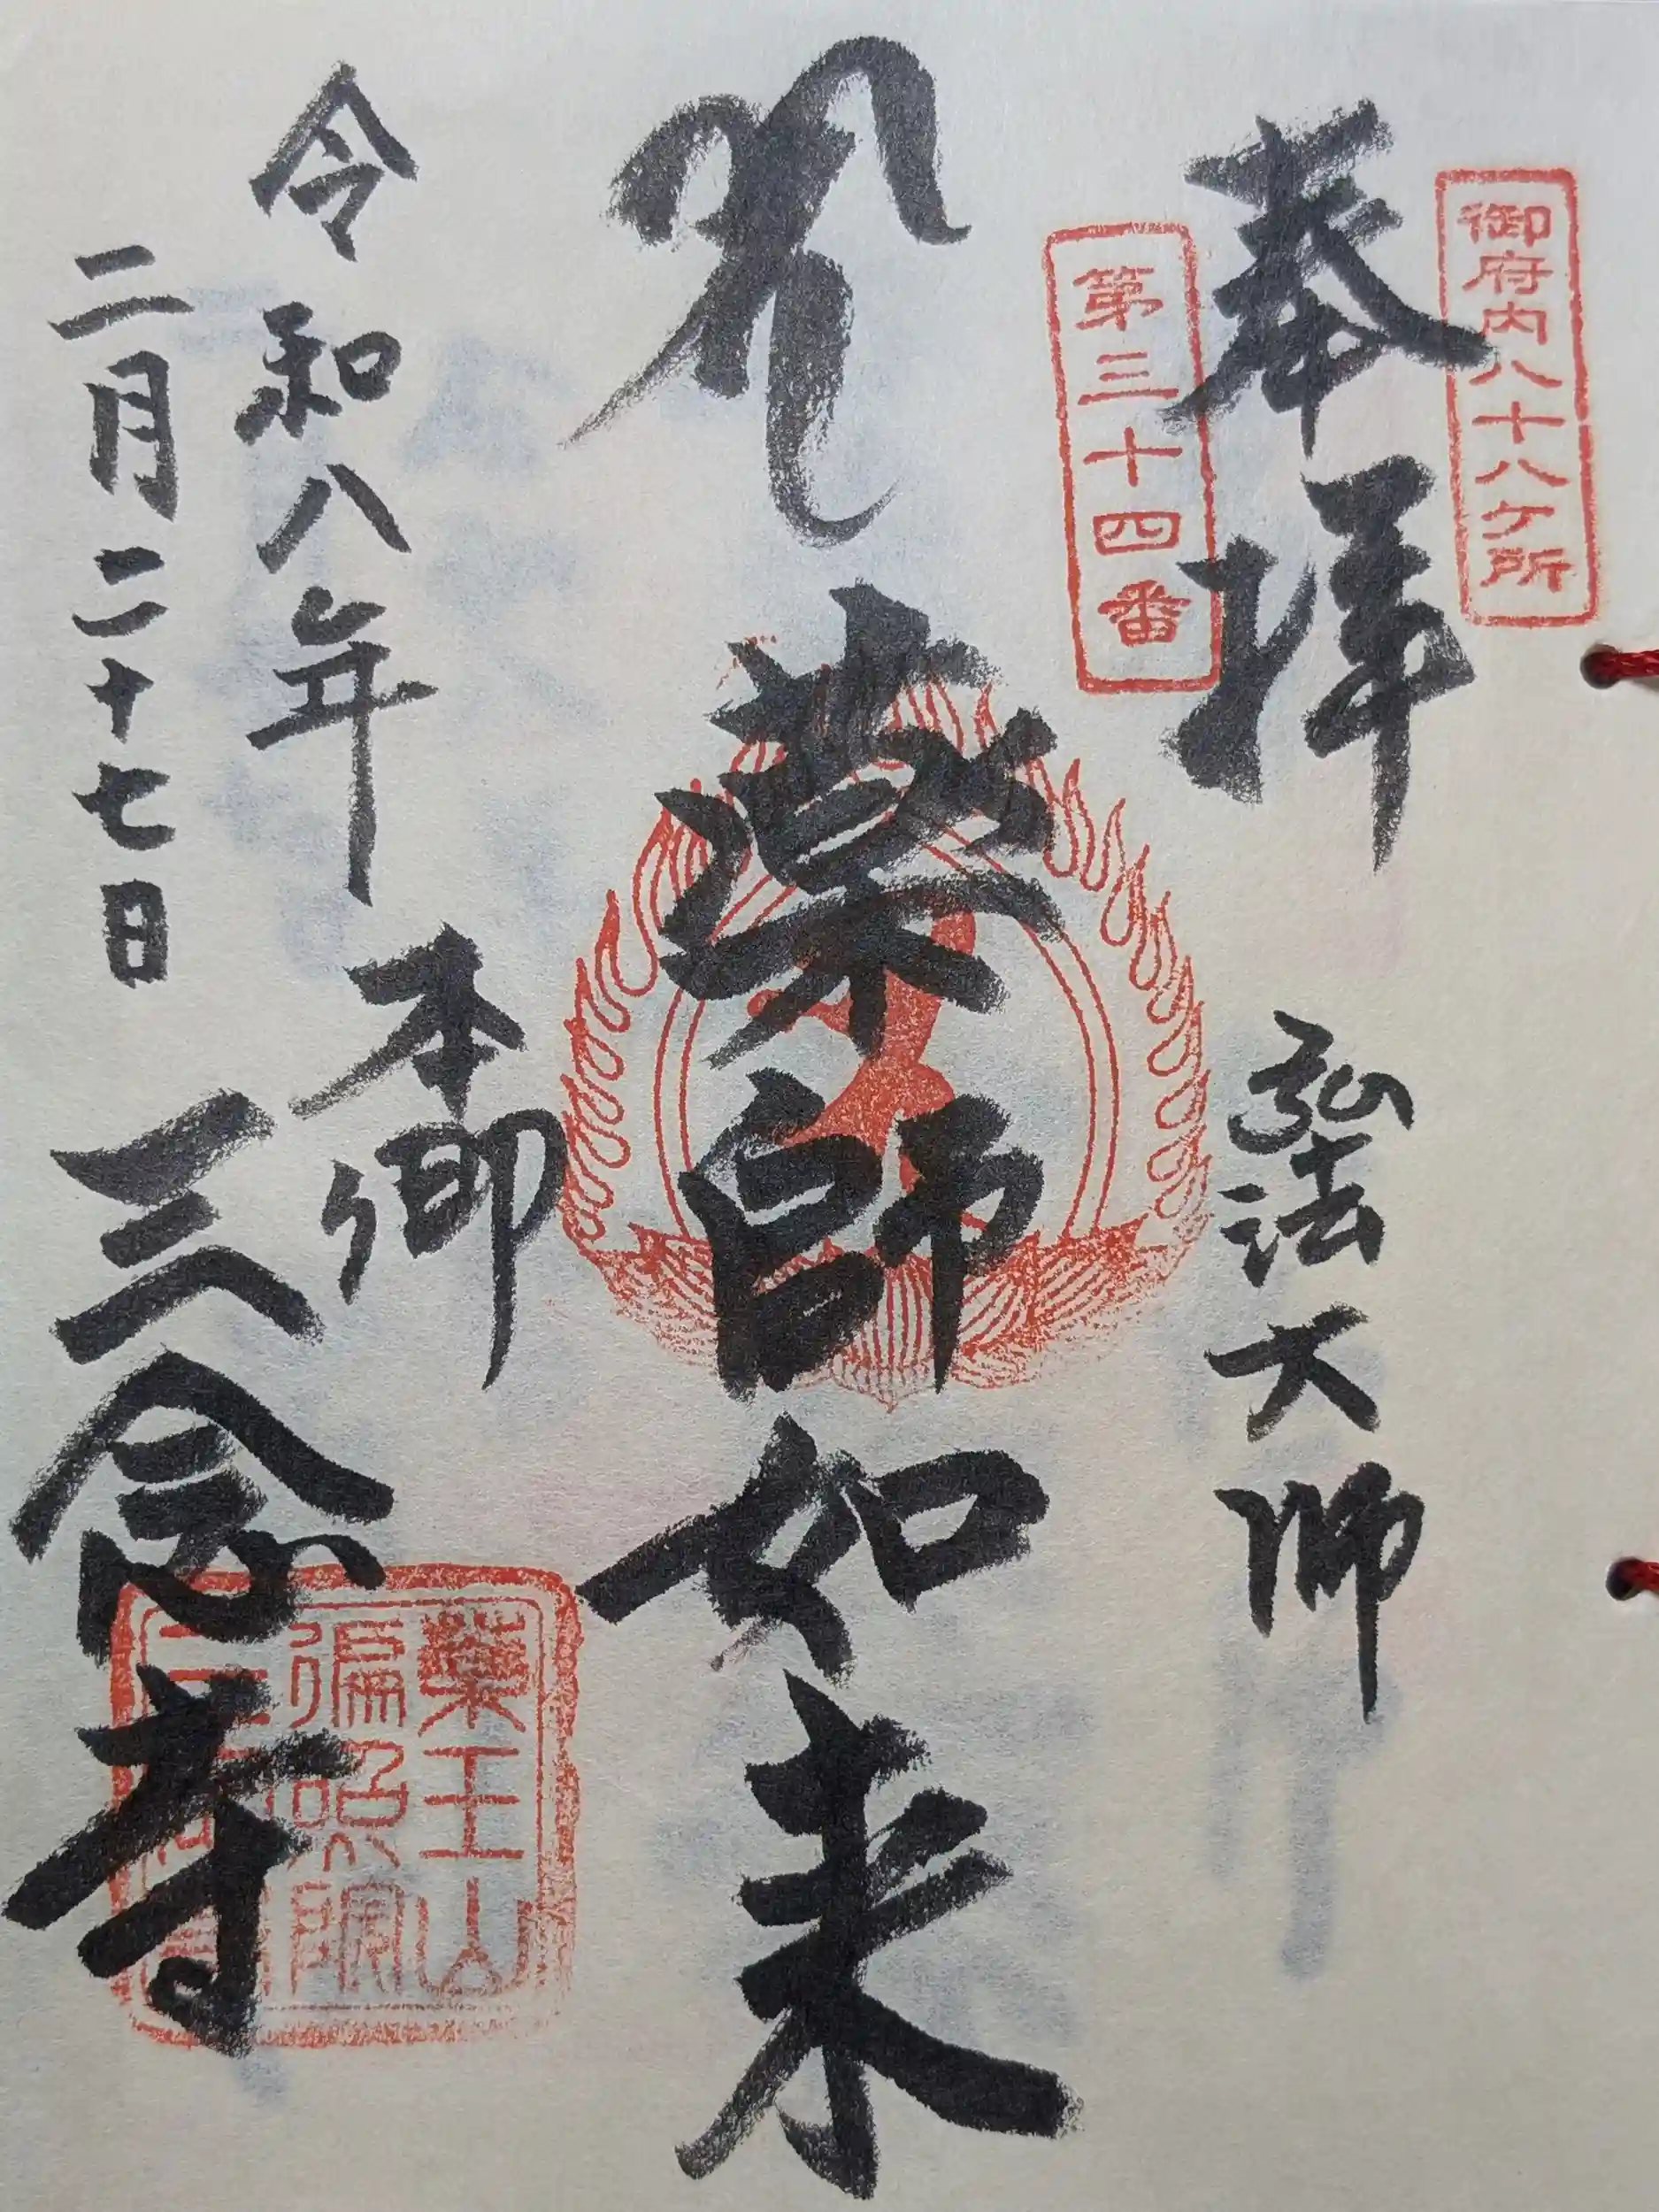 御府内八十八ケ所
奉拝
弘法大師
第三十四番
薬師如来
令和八年
二月二十七日
本郷
三念寺
藥王山
徧照院